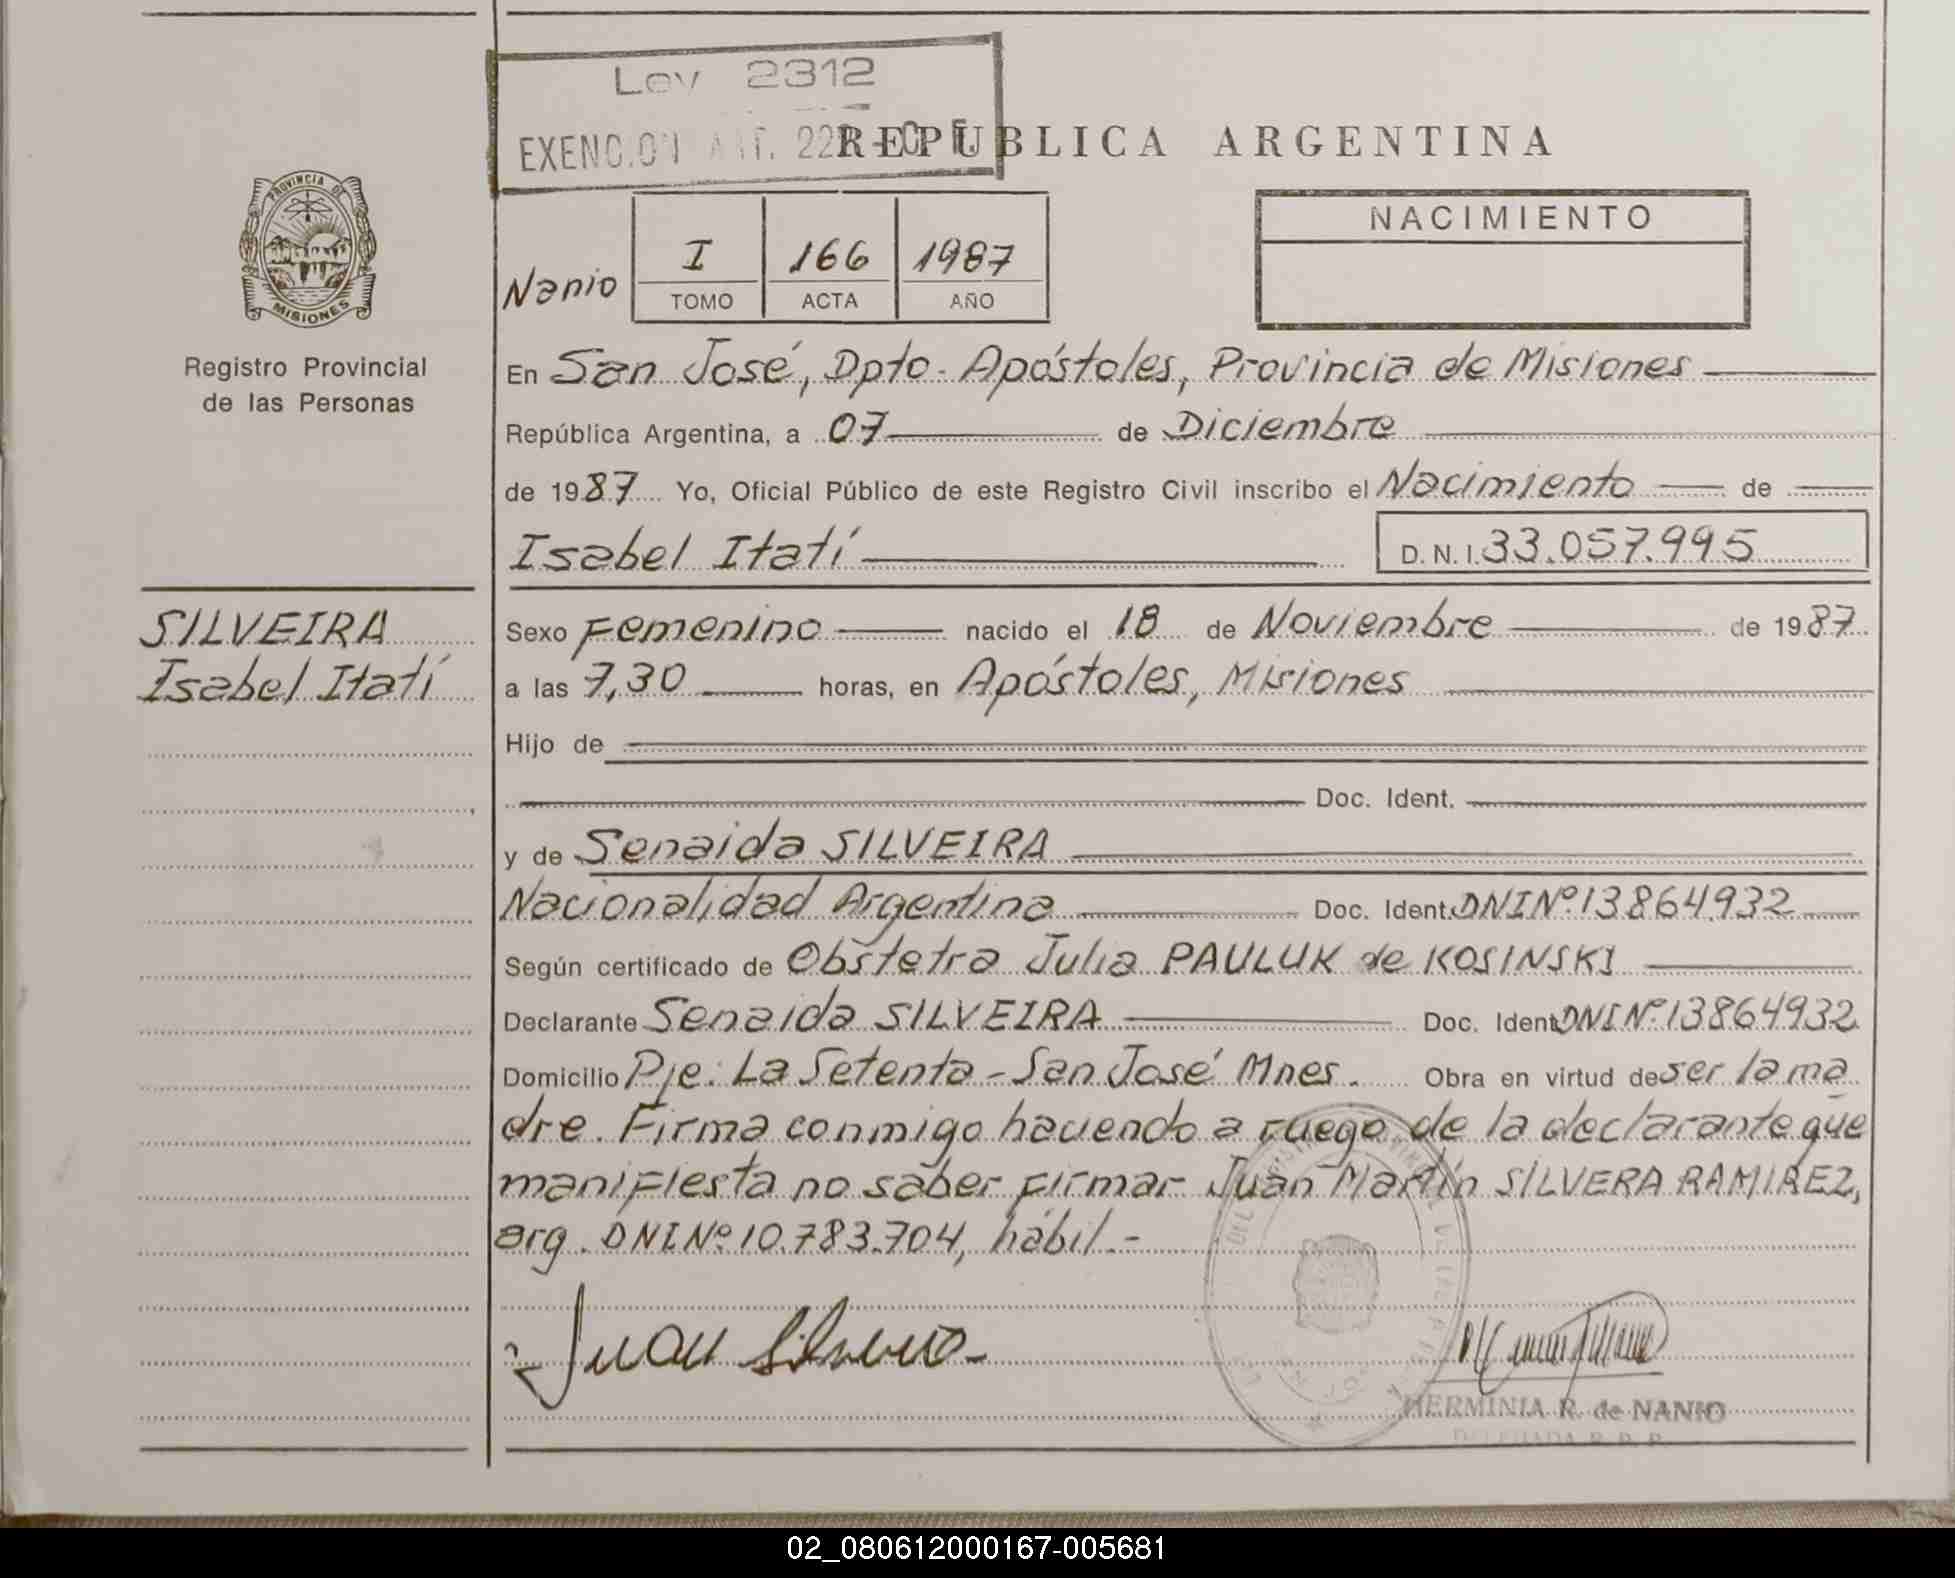 Ley 2312
EXENC.ON ART. 22
REPUBLICA ARGENTINA
PROVINCIA DE
MISIONES
Registro Provincial
de las Personas
Nanio
I 166 1987
TOMO ACTA AÑO
NACIMIENTO
En San José, Dpto. Apóstoles, Provincia de Misiones
República Argentina, a 07 de Diciembre
de 1987 Yo, Oficial Público de este Registro Civil inscribo el Nacimiento de
Isabel Itatí D. N. I. 33.057.995
SILVEIRA
Isabel Itatí
Sexo Femenino nacido el 18 de Noviembre de 1987
a las 7,30 horas, en Apóstoles, Misiones
Hijo de
Doc. Ident.
y de Senaida SILVEIRA
Nacionalidad Argentina Doc. Ident. DNI Nº 13864932
Según certificado de Obstetra Julia PAULUK de KOSINSKI
Declarante Senaida SILVEIRA Doc. Ident DNI Nº 13864932
Domicilio Pje: La Setenta - San José Mnes. Obra en virtud de ser la ma
dre. Firma conmigo haciendo a ruego de la declarante que
manifiesta no saber firmar Juan Martín SILVERA RAMIREZ,
arg. DNI Nº 10.783.704, hábil.-
Juan Silvera
HERMINIA R. de NANIO
DELEGADA R. P. P.
02_080612000167-005681